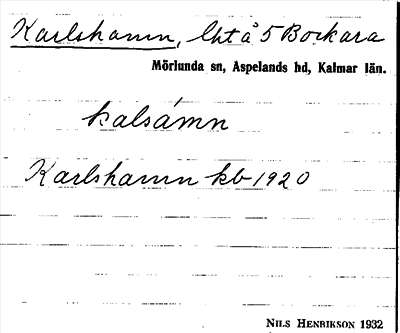 Karlshamn, lht å 5 Bockara
Mörlunda sn, Aspelands hd, Kalmar län.
kalsámn
Karlshamn kb 1920
NILS HENRIKSON 1932